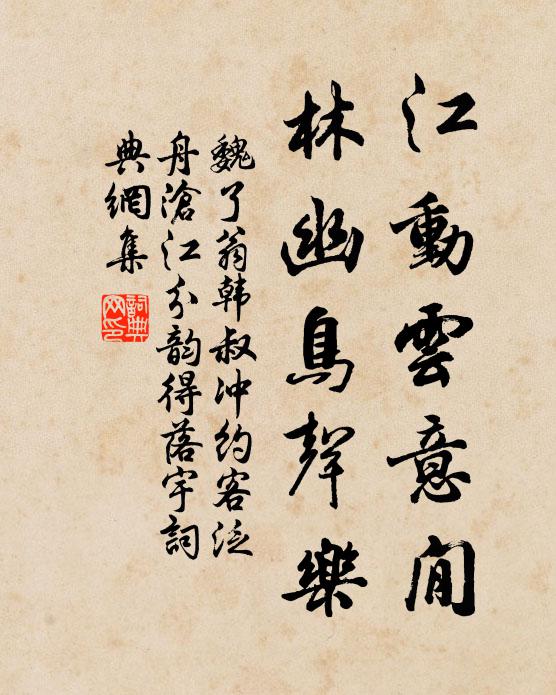 江動雲意閒
林幽鳥聲樂
魏了翁韓叔冲約客泛
舟滄江分韵得落字詞
典網集
詞典
网印